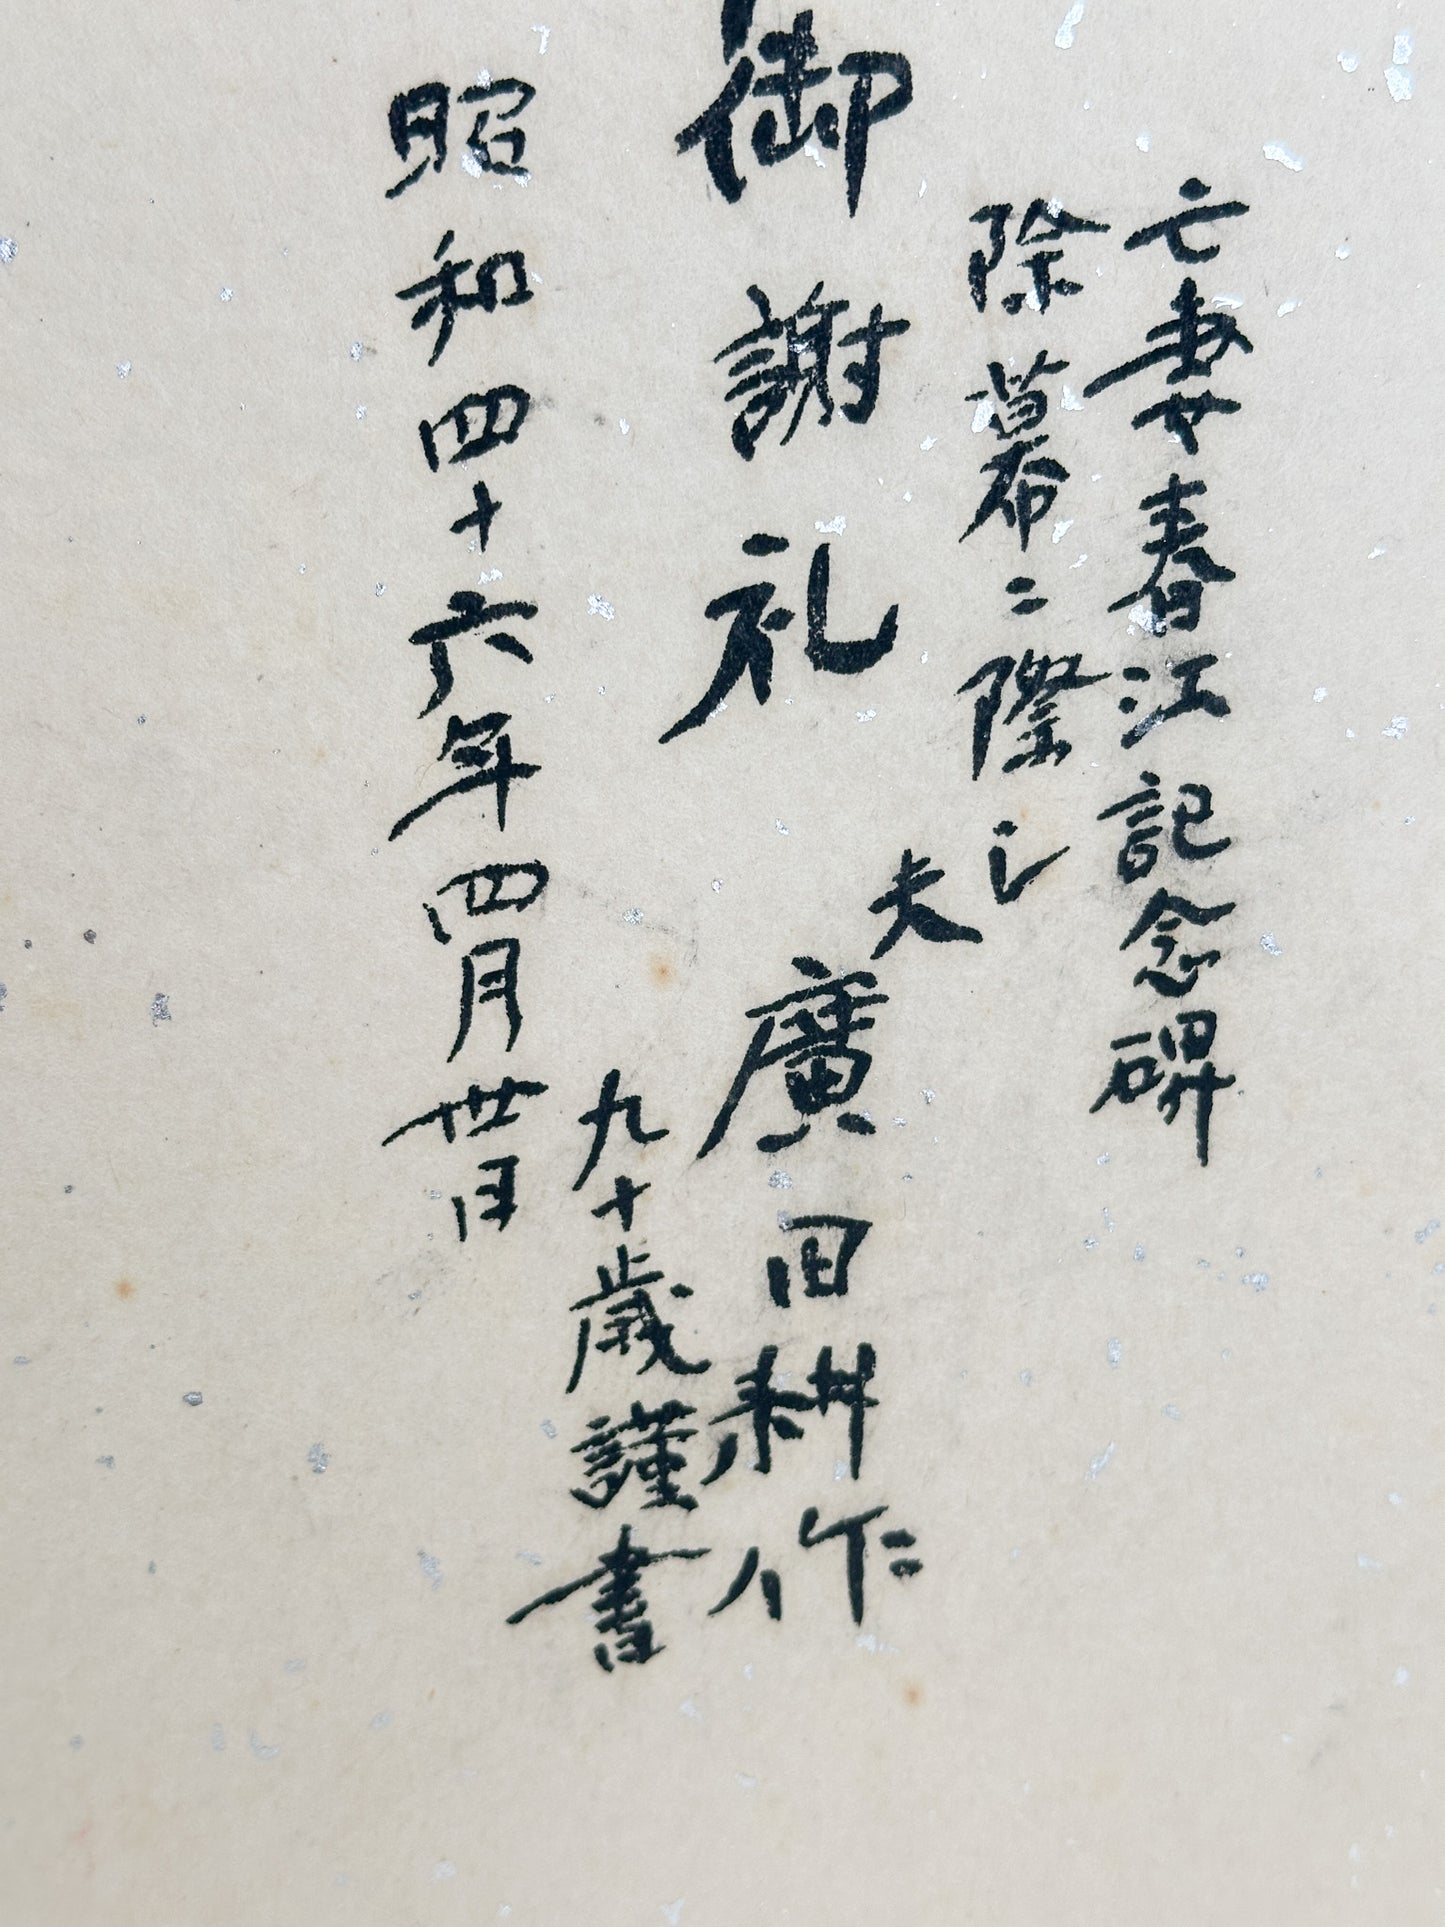 亡妻春江記念碑
除幕ニ際シ
御謝礼
夫
廣田耕作
九十歳謹書
昭和四十六年四月廿日